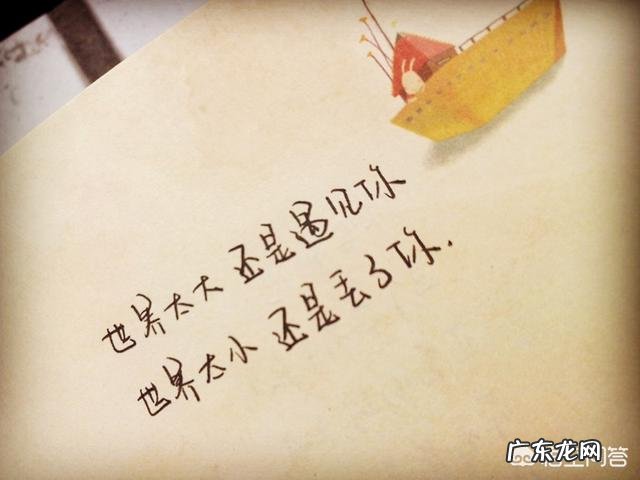 世界太大 还是遇见你
世界太小 还是丢了你.
广东龙网